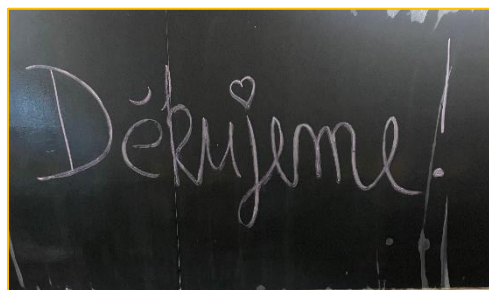 Děkujeme!